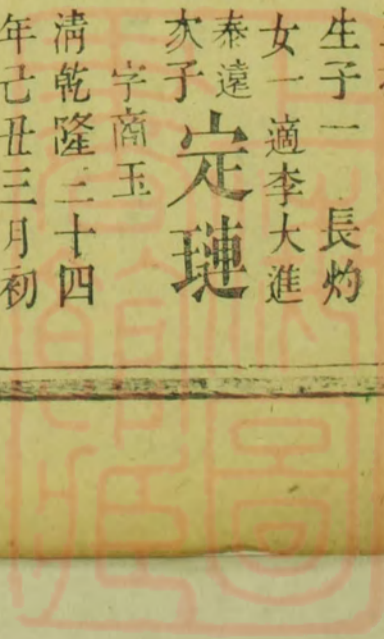 生子一 長灼
女一適李大進
泰遠
次子定璉
字商玉
清乾隆二十四
年己丑三月初